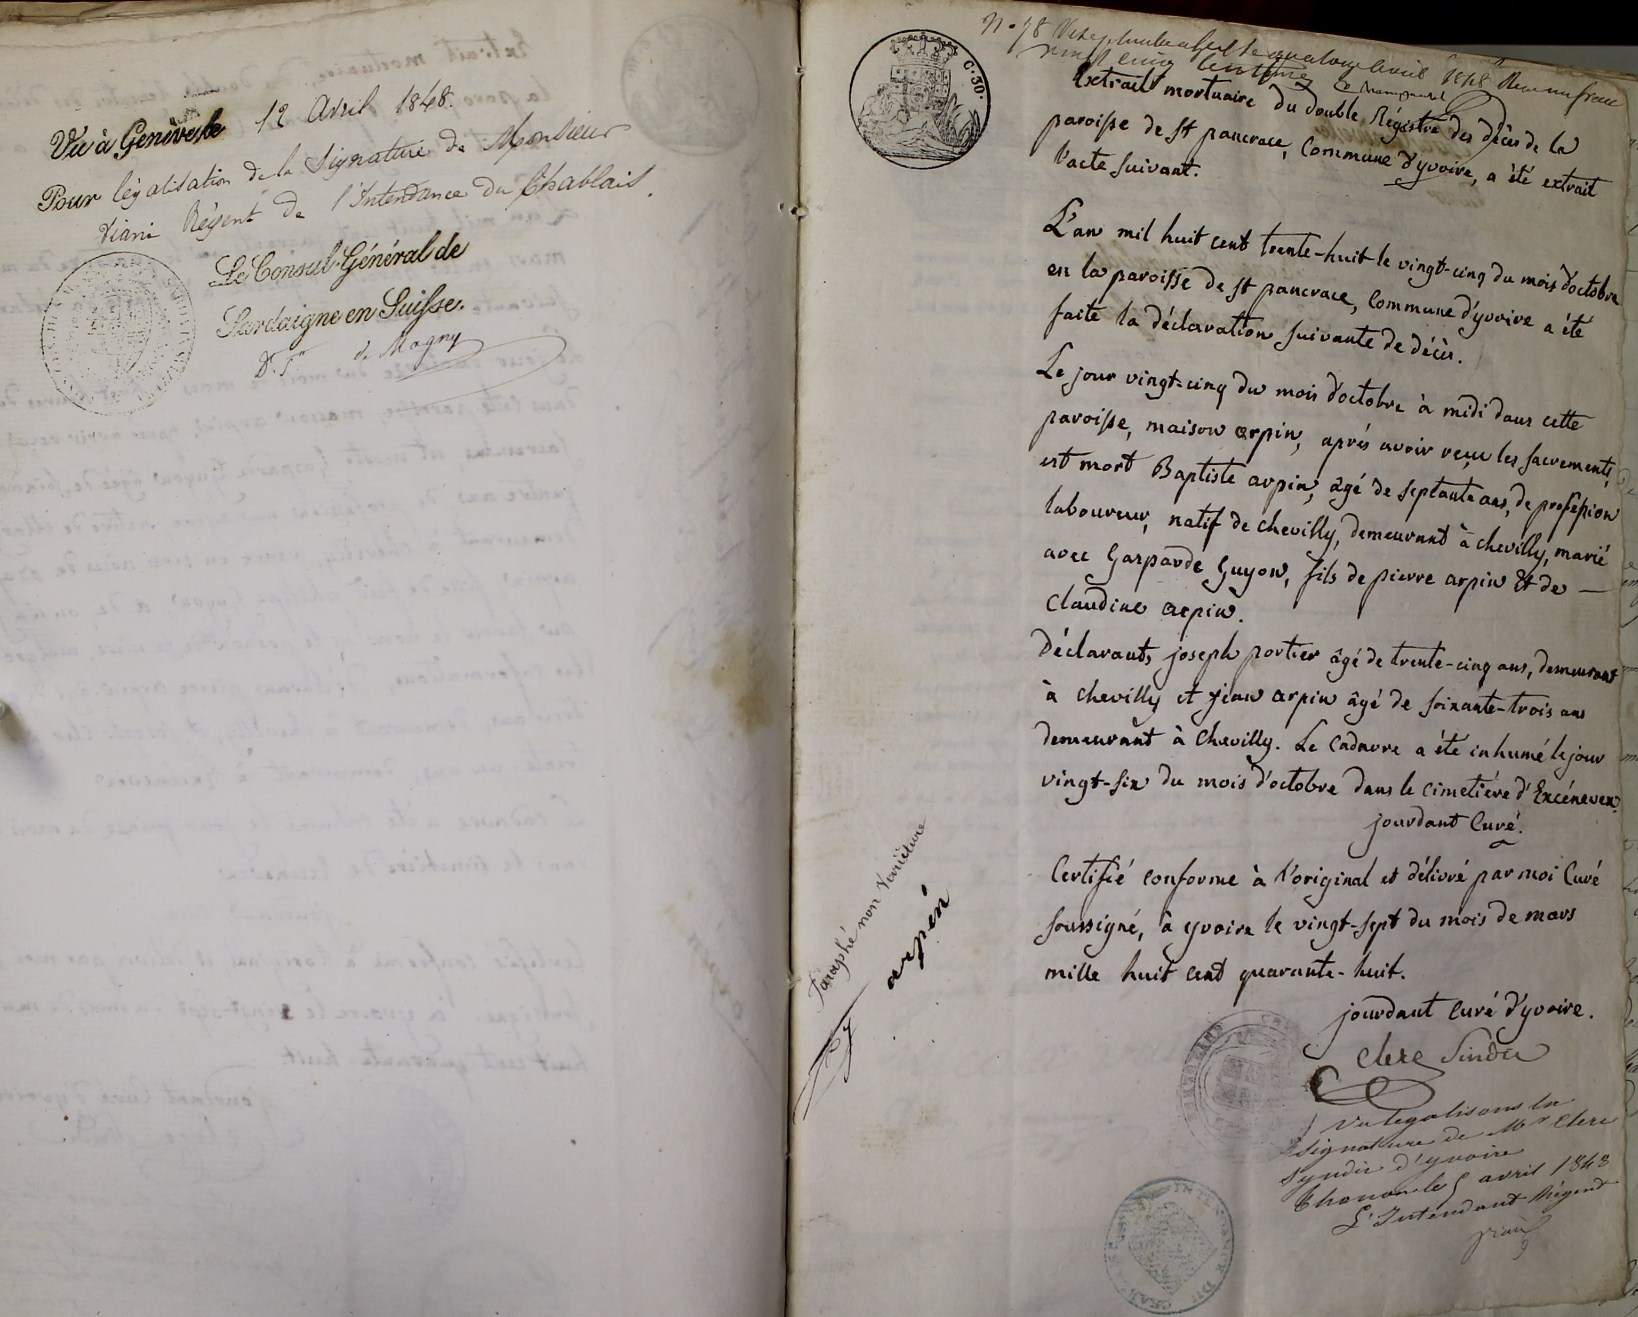 Vu à Genève le 12 Avril 1848.
Pour légalisation de la Signature de Monsieur
Viani Régent de l'Intendance du Chablais.
Le Consul Général de
Sardaigne en Suisse.
de Magny
C. 30.
N. 78
vingt cinq centimes
Extrait mortuaire du double Régistre des décès de la
paroisse de st pancrace, Commune d'yvoire, a été extrait
l'acte suivant.
L'an mil huit cent trente-huit le vingt-cinq du mois d'octobre
en la paroisse de st pancrace, Commune d'yvoire a été
faite la déclaration suivante de décès.
Le jour vingt-cinq du mois d'octobre à midi dans cette
paroisse, maison arpin, après avoir reçu les sacrements,
est mort Baptiste arpin, âgé de septante ans, de profession
laboureur, natif de chevilly, demeurant à chevilly, marié
avec Gasparde Guyon, fils de pierre arpin et de —
Claudine arpin.
Déclarants, joseph portier âgé de trente-cinq ans, demeurant
à chevilly et jean arpin âgé de soixante-trois ans
demeurant à chevilly. Le cadavre a été inhumé le jour
vingt-six du mois d'octobre dans le cimetière d'Excénevex.
jourdant Curé.
Certifié conforme à l'original et délivré par moi Curé
soussigné, à yvoire le vingt-sept du mois de mars
mille huit cent quarante-huit.
jourdant curé d'yvoire.
Clerc Sindic
Vu legalisons la
signature de Mr Clerc
syndic d'yvoire
Thonon le 5 avril 1848
L'Intendant Régent
Viani
Paraphé non Varietur
arpin